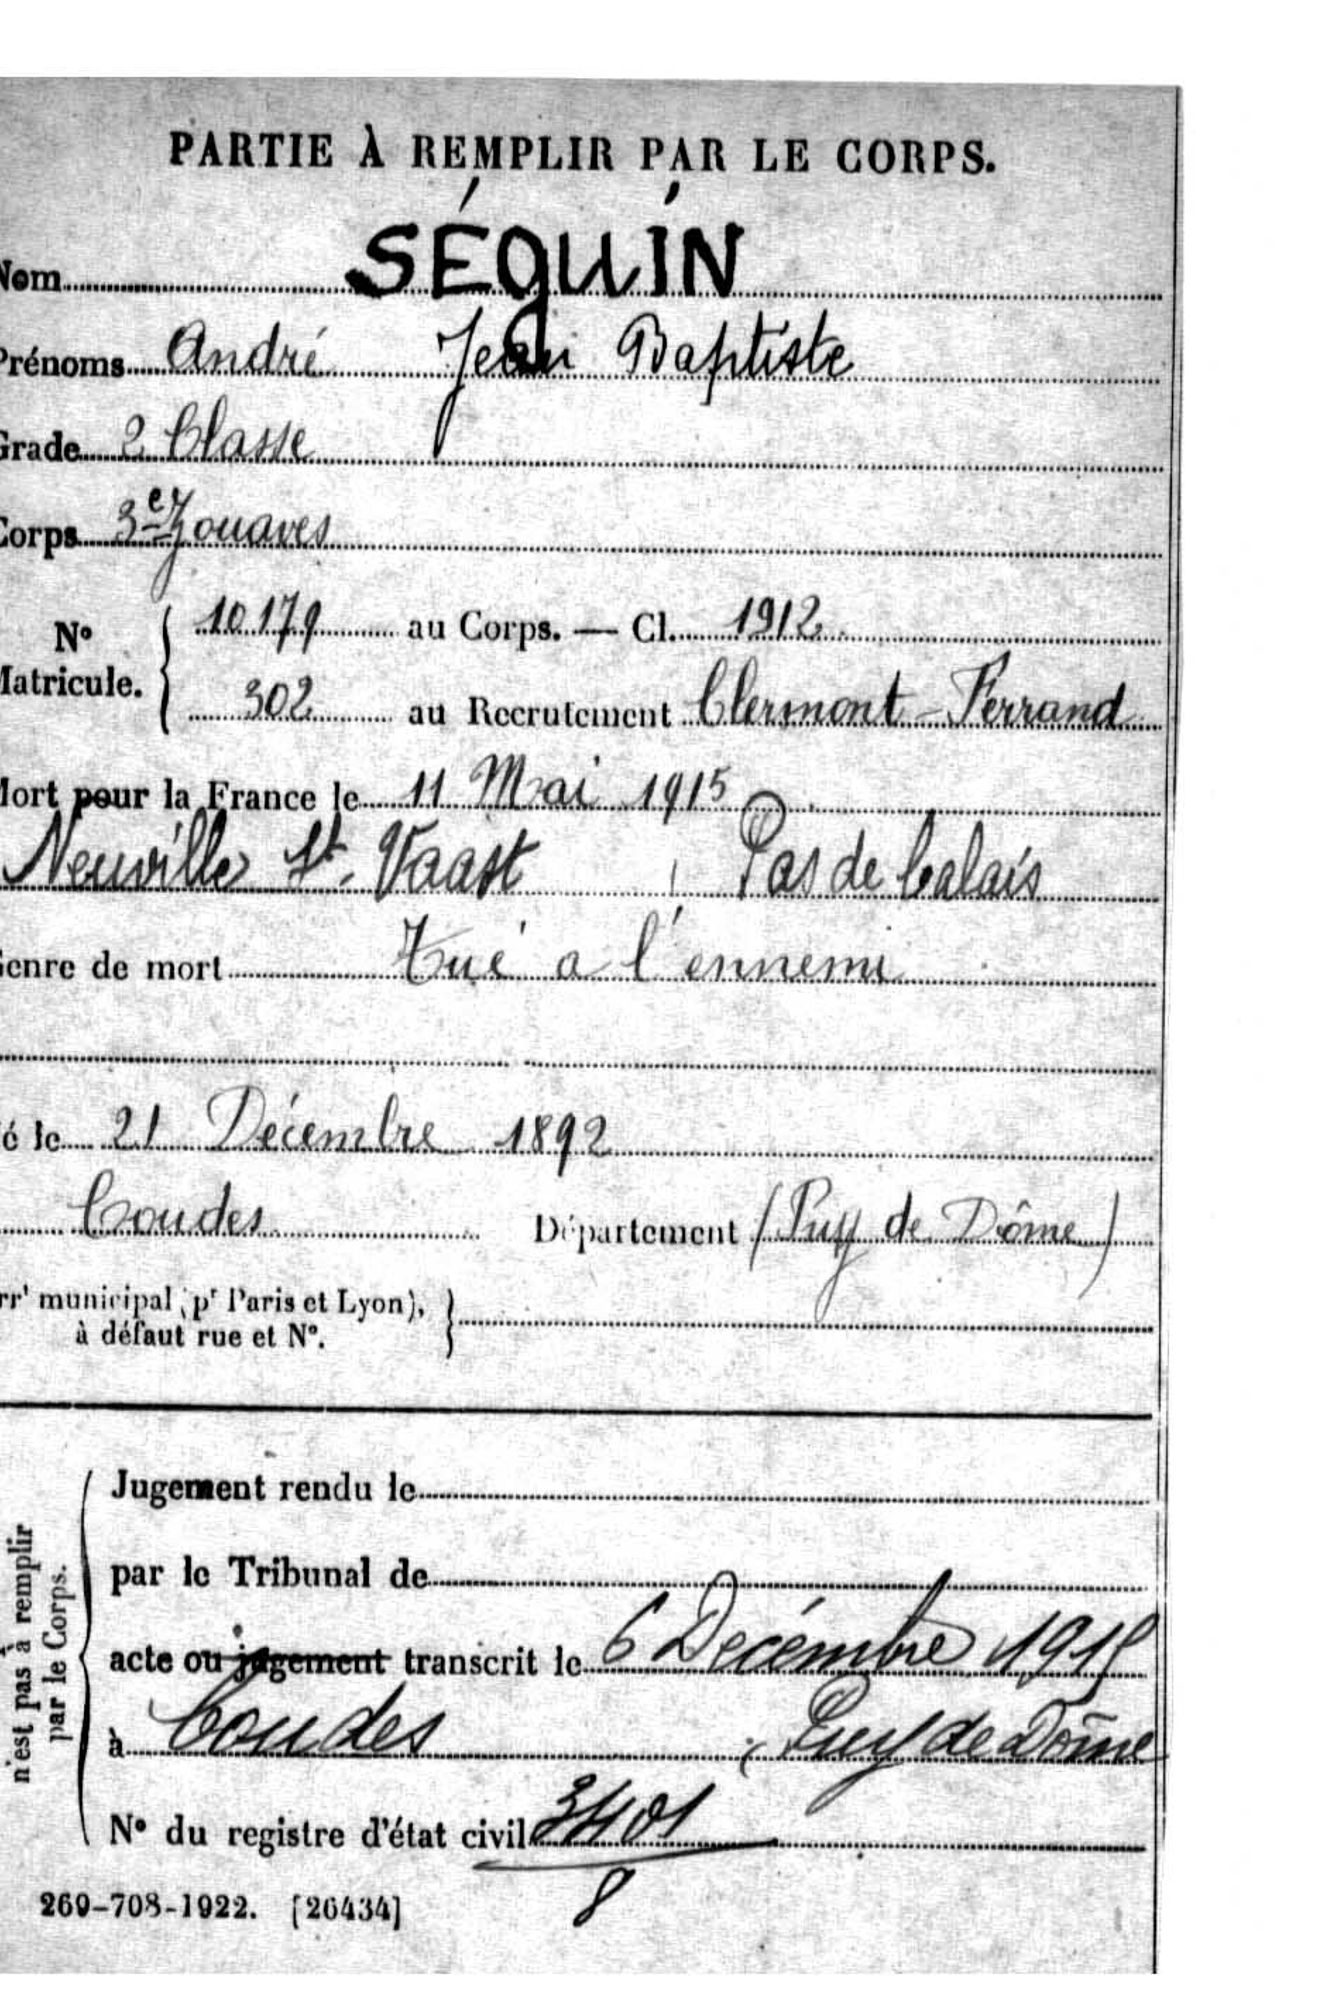 PARTIE À REMPLIR PAR LE CORPS.
Nom SÉGUIN
Prénoms André Jean Baptiste
Grade 2 Classe
Corps 3e Zouaves
No Matricule. { 10179 au Corps. — Cl. 1912
302 au Recrutement Clermont-Ferrand
Mort pour la France le 11 Mai 1915
Neuville St. Vaast Pas de Calais
Genre de mort Tué a l'ennemi
é le 21 Décembre 1892
Coudes Département (Puy de Dôme)
rrt municipal (pr Paris et Lyon),
à défaut rue et No.
n'est pas à remplir
par le Corps.
Jugement rendu le
par le Tribunal de
acte ou jugement transcrit le 6 Décembre
à Coudes (Puy de Dôme
No du registre d'état civil 3401
8
269-708-1922. [26434]